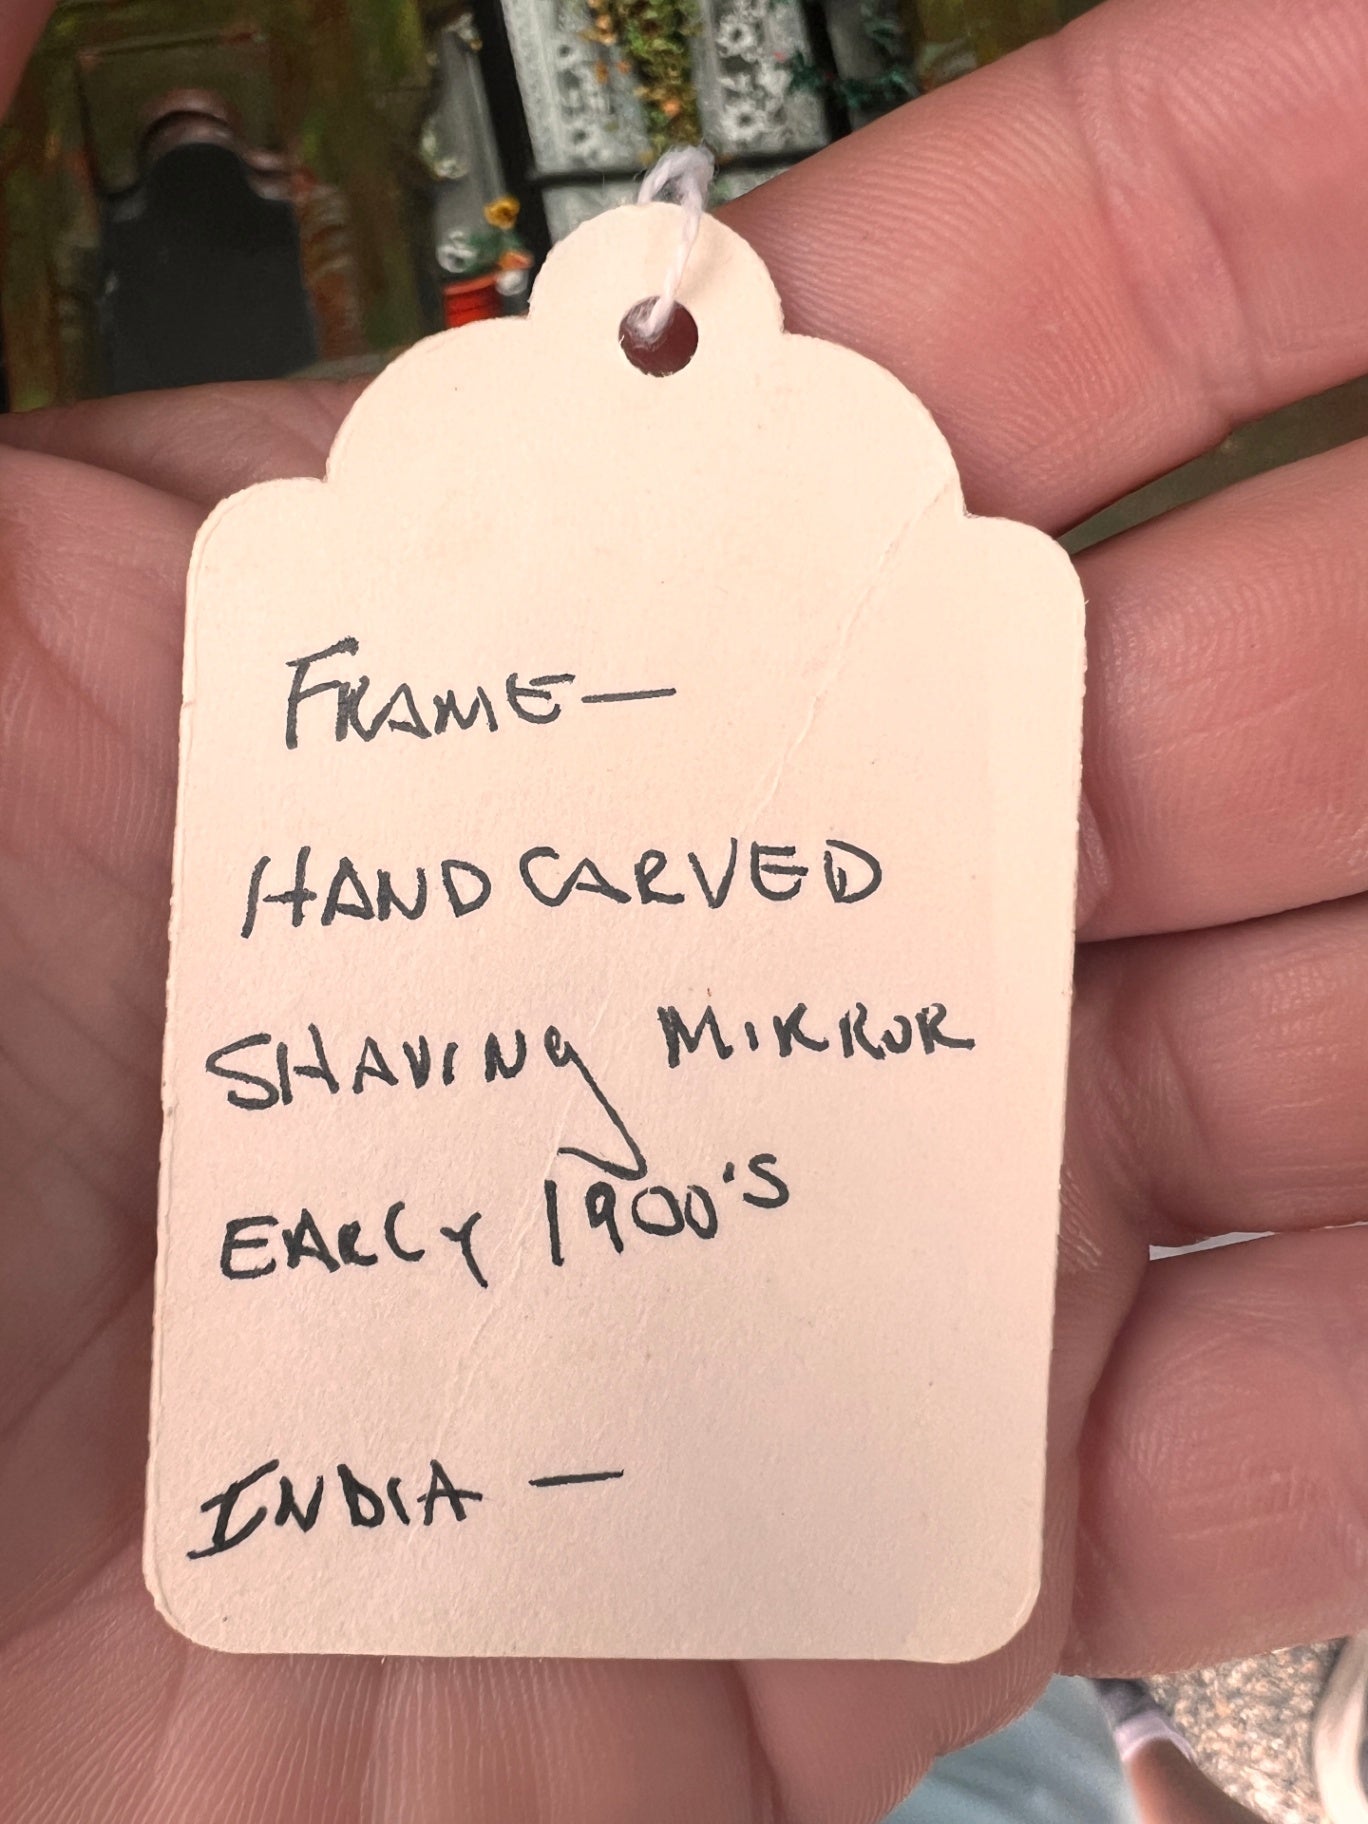 FRAME—
HAND CARVED
SHAVING MIRROR
EARLY 1900'S
INDIA —